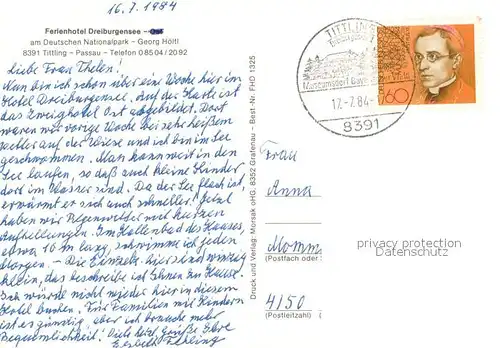 16.7.1984
Ferienhotel Dreiburgensee - Ost
am Deutschen Nationalpark - Georg Höltl
8391 Tittling - Passau - Telefon 0 85 04 / 20 92
Liebe Frau Thelen!
Nun bin ich schon über eine Woche hier im
Hotel Dreiburgensee. Auf der Karte ist
das Zweighotel Ost abgebildet. Dort
waren wir vorige Woche bei sehr heißem
Wetter auf der Wiese und ich bin im See
geschwommen. Man kann weit in den
See laufen, so daß auch kleine Kinder
dort im Wasser sind. Da der See flach ist,
erwärmt er sich auch schneller. Jetzt
haben wir Regenwetter mit kurzen
Aufhellungen. Im Hallenbad des Hauses,
etwa 10 m lang, schwimme ich jeden
Morgen. - Die Einzelz. hier sind winzig
klein, das beschreibe ich Ihnen zu Hause.
Ich würde nicht wieder hier in diesem
Hotel buchen. Für Familien mit Kindern
ist es günstig, aber ich brauche mehr
Bequemlichkeit. Viele herzl. Grüße Ihre
Elsbeth
Druck und Verlag: Morsak oHG, 8352 Grafenau - Best.-Nr. FHD 1325
TITTLING
Museumsdorf Bayer.
17.-7.84-
8391
60
Frau
Anna
Momm
(Postfach oder
4150
(Postleitzahl)
privacy protection
Datenschutz